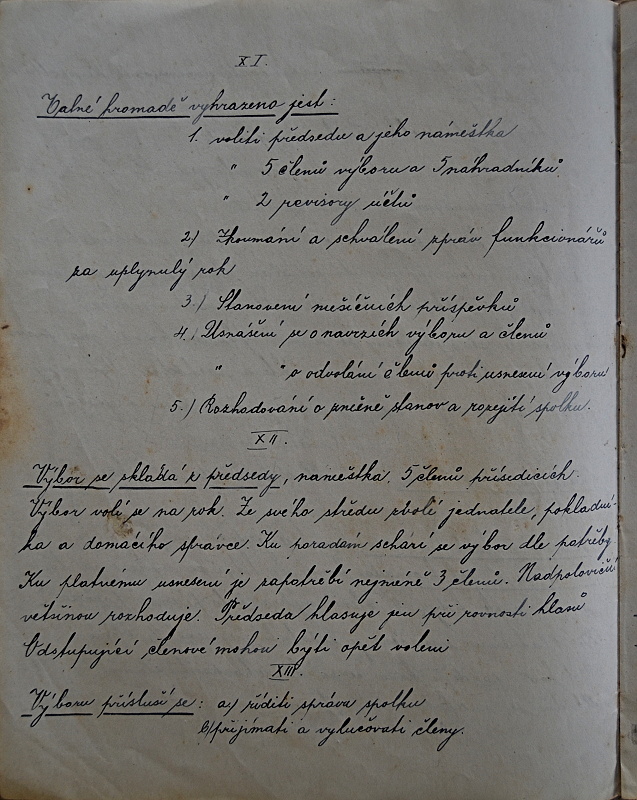 XI.
Valné hromadě vyhrazeno jest:
1. voliti předsedu a jeho náměstka
" 5 členů výboru a 5 náhradníků
" 2 revisory účtů
2.) Zkoumání a schválení zpráv funkcionářů
za uplynulý rok
3.) Stanovení měsíčních příspěvků
4.) Usnášení se o navrzích výboru a členů
" " o odvolání členů proti usnesení výboru
5.) Rozhodování o změně stanov a rozejití spolku.
XII.
Výbor se skládá z předsedy, naměstka, 5 členů přísedících.
Výbor volí se na rok. Ze svého středu zvolí jednatele, pokladní-
ka a domácího správce. Ku poradám schází se výbor dle potřeby.
Ku platnému usnesení je zapotřebí nejméně 3 členů. Nadpoloviční
většinou rozhoduje. Předseda hlasuje jen při rovnosti hlasů
Odstupující členové mohou býti opět voleni
XIII.
Výboru přísluší se: a) říditi správu spolku
b) přijímati a vylučovati členy.